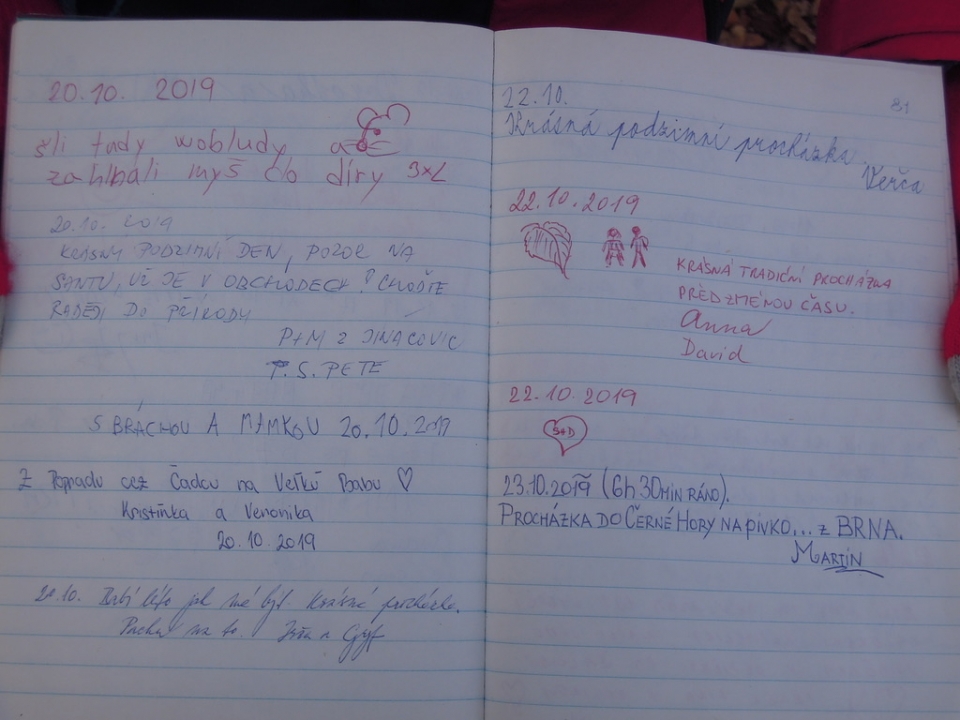 20.10. 2019
šli tady wobludy a
zahlbáli myš do díry 3xL
20.10. 2019
KRÁSNÝ PODZIMNÍ DEN, POZOR NA
SANTU, UŽ JE V OBCHODECH! CHOĎTE
RADĚJI DO PŘÍRODY
P+M Z JINAČOVIC
P.S. PETE
S BRÁCHOU A MAMKOU 20.10.2019
Z Popradu cez Čadcu na Veľkú Babu ♡
Kristínka a Veronika
20.10.2019
20.10. Babí léto jak má být. Krásná procházka.
na to.
81
22.10.
Krásná podzimní procházka
Verča
22.10.2019
KRÁSNÁ TRADIČNÍ PROCHÁZKA
PŘED ZMĚNOU ČASU.
Anna
David
22.10.2019
S+D
23.10.2019 (6h 30MIN RÁNO).
PROCHÁZKA DO ČERNÉ HORY NA PIVKO... Z BRNA.
MARTIN